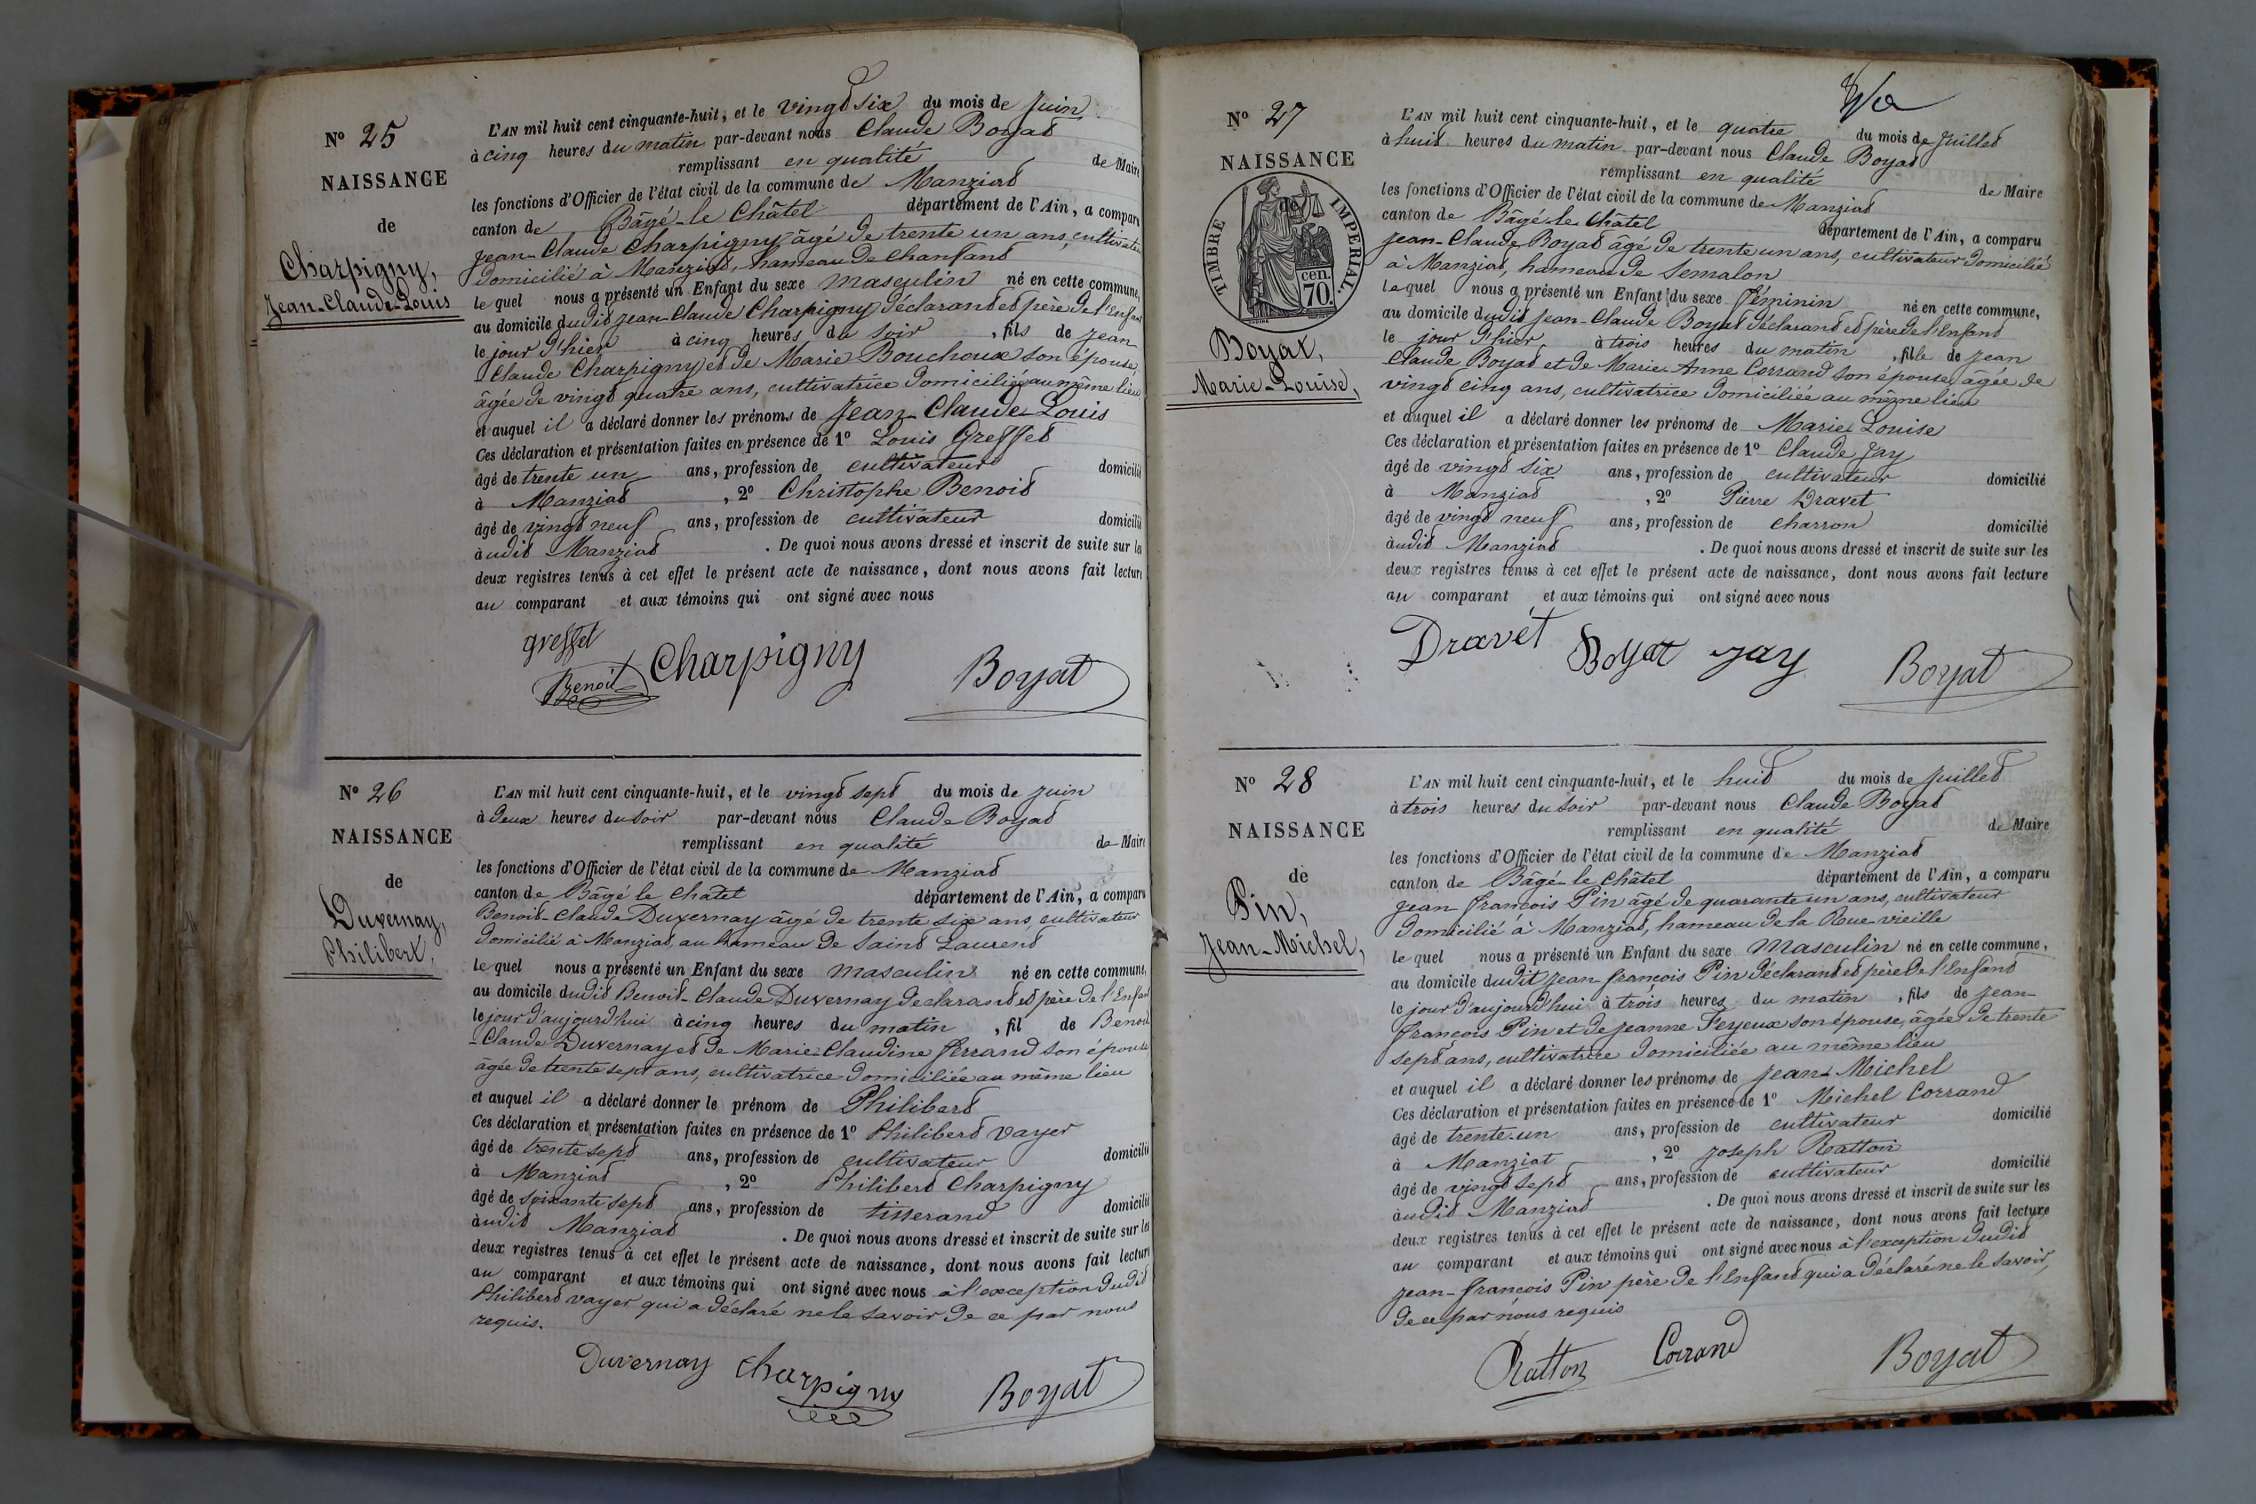 N° 25
NAISSANCE
de
Charpigny,
Jean-Claude-Louis
L'AN mil huit cent cinquante-huit, et le vingt six du mois de Juin
à cinq heures du matin par-devant nous Claude Boyat
remplissant en qualité de Maire
les fonctions d'Officier de l'état civil de la commune de Manziat
canton de Bâgé-le Châtel département de l'Ain, a comparu
Jean-Claude Charpigny âgé de trente un ans, cultivateur
domicilié à Manziat, hameau de Chanfant
lequel nous a présenté un Enfant du sexe masculin né en cette commune,
au domicile dudit Jean-Claude Charpigny déclarant et père de l'Enfant
le jour d'hier à cinq heures du soir, fils de Jean
-Claude Charpigny et de Marie Bouchoux son épouse,
âgée de vingt quatre ans, cultivatrice domiciliée au même lieu
et auquel il a déclaré donner les prénoms de Jean-Claude Louis
Ces déclaration et présentation faites en présence de 1° Louis Greffet
âgé de trente un ans, profession de cultivateur domicilié
à Manziat, 2° Christophe Benoit
âgé de vingt neuf ans, profession de cultivateur domicilié
audit Manziat. De quoi nous avons dressé et inscrit de suite sur les
deux registres tenus à cet effet le présent acte de naissance, dont nous avons fait lecture
au comparant et aux témoins qui ont signé avec nous
greffet
Benoit Charpigny Boyat
N° 26
NAISSANCE
de
Duvernay,
Philibert,
L'AN mil huit cent cinquante-huit, et le vingt sept du mois de Juin
à deux heures du soir par-devant nous Claude Boyat
remplissant en qualité de Maire
les fonctions d'Officier de l'état civil de la commune de Manziat
canton de Bâgé le Chatel département de l'Ain, a comparu
Benoit-Claude Duvernay âgé de trente six ans, cultivateur
domicilié à Manziat, au hameau de Saint Laurent
lequel nous a présenté un Enfant du sexe masculin né en cette commune,
au domicile dudit Benoit-Claude Duvernay déclarant et père de l'Enfant
le jour d'aujourd'hui à cinq heures du matin, fil de Benoit
-Claude Duvernay et de Marie Claudine Ferrand son épouse
âgée de trente sept ans, cultivatrice domiciliée au même lieu
et auquel il a déclaré donner le prénom de Philibert
Ces déclaration et présentation faites en présence de 1° Philibert Vayer
âgé de trente sept ans, profession de cultivateur domicilié
à Manziat, 2° Philibert Charpigny
âgé de soixante sept ans, profession de tisserand domicilié
audit Manziat. De quoi nous avons dressé et inscrit de suite sur les
deux registres tenus à cet effet le présent acte de naissance, dont nous avons fait lecture
au comparant et aux témoins qui ont signé avec nous à l'exception dudit
Philibert Vayer qui a déclaré ne le savoir de ce par nous
requis.
Duvernay Charpigny Boyat
N° 27
NAISSANCE
de
TIMBRE IMPERIAL.
70 cen.
Boyat,
Marie-Louise,
L'AN mil huit cent cinquante-huit, et le quatre du mois de Juillet
à huit heures du matin par-devant nous Claude Boyat
remplissant en qualité de Maire
les fonctions d'Officier de l'état civil de la commune de Manziat
canton de Bâgé-le Châtel département de l'Ain, a comparu
Jean-Claude Boyat âgé de trente un ans, cultivateur domicilié
à Manziat, hameau de Semalon
lequel nous a présenté un Enfant du sexe féminin né en cette commune,
au domicile dudit Jean-Claude Boyat déclarant et père de l'Enfant
le jour d'hier, à trois heures du matin, fille de Jean
Claude Boyat et de Marie-Anne Corrand son épouse, âgée de
vingt cinq ans, cultivatrice domiciliée au même lieu
et auquel il a déclaré donner les prénoms de Marie Louise
Ces déclaration et présentation faites en présence de 1° Claude Jay
âgé de vingt six ans, profession de cultivateur domicilié
à Manziat, 2° Pierre Dravet
âgé de vingt neuf ans, profession de charron domicilié
audit Manziat. De quoi nous avons dressé et inscrit de suite sur les
deux registres tenus à cet effet le présent acte de naissance, dont nous avons fait lecture
au comparant et aux témoins qui ont signé avec nous
Dravet Boyat Jay Boyat
N° 28
NAISSANCE
de
Pin,
Jean-Michel,
L'AN mil huit cent cinquante-huit, et le huit du mois de Juillet
à trois heures du soir par-devant nous Claude Boyat
remplissant en qualité de Maire
les fonctions d'Officier de l'état civil de la commune de Manziat
canton de Bâgé-le Châtel département de l'Ain, a comparu
Jean-françois Pin âgé de quarante un ans, cultivateur
domicilié à Manziat, hameau de la Rue-vieille
lequel nous a présenté un Enfant du sexe masculin né en cette commune,
au domicile dudit Jean françois Pin déclarant et père de l'Enfant
le jour d'aujourd'hui à trois heures du matin, fils de Jean-
françois Pin et de Jeanne Feyeux son épouse, âgée de trente
sept ans, cultivatrice domiciliée au même lieu
et auquel il a déclaré donner les prénoms de Jean-Michel
Ces déclaration et présentation faites en présence de 1° Michel Corrand
âgé de trente-un ans, profession de cultivateur domicilié
à Manziat, 2° Joseph Ratton
âgé de vingt sept ans, profession de cultivateur domicilié
audit Manziat. De quoi nous avons dressé et inscrit de suite sur les
deux registres tenus à cet effet le présent acte de naissance, dont nous avons fait lecture
au comparant et aux témoins qui ont signé avec nous à l'exception dudit
Jean-françois Pin père de l'Enfant qui a déclaré ne le savoir,
de ce par nous requis
Ratton Corrand Boyat